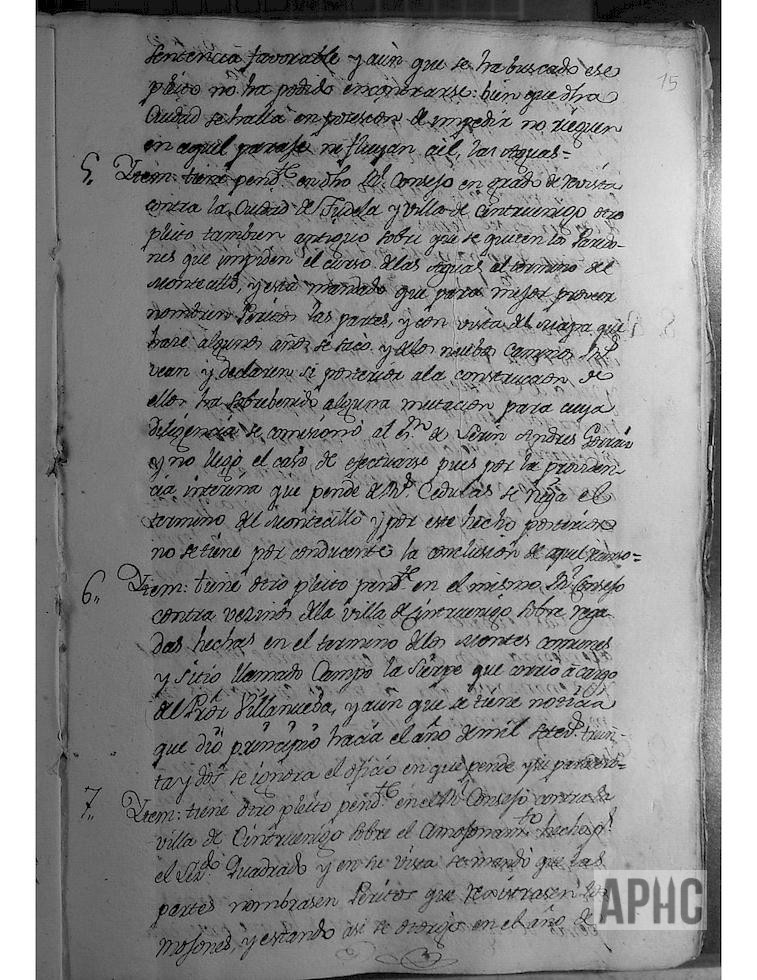 15
sentencia favorable y aun que se ha buscado ese
pleito no ha podido encontrarse: bien que dha
Ciudad se halla en posesion de impedir no rieguen
en aquel paraje ni fluyan aél, las Aguas=
5., Ytem: tiene pend.te en dho Rl. Consejo en grado de revista
contra la Ciudad de Tudela y villa de Cintruenigo otro
pleito tambien antiguo sobre que se quiten los
nes que impiden el curso delas Aguas el termino del
Montecillo, y està mandado que para mejor proveer
nombren Peritos las partes, y con vista del Mapa que
hace algunos años se sacò y dellos nuebos Caminos Rs.
vean y declaren si posterior ala construccion de
ellos ha sobrebenido alguna mutacion para cuya
diligencia se comisionò al de Andres
y no llegò el caso de efectuarse pues por la providen
cia interina que pende de Rs. Cedulas se riega el
termino del Montecillo y por este hecho posterior
no se tiene por conducente la conclusion de aquel
6., Ytem: tiene otro pleito pend.te en el mismo Rl. Consejo
contra vezinos dela villa de Cintruenigo sobre rega
das hechas en el termino delos Montes comunes
y sitio llamado Campo la Sierpe que corriò à cargo
del Pror Villanueba, y aun que se tiene noticia
que diò principio hacia el año de mil setez.s trein-
ta y dos se ignora el oficio en que pende y su paradero=
7., Ytem: tiene otro pleito pend.te en el Rl. Consejo contra la
villa de Cintruenigo sobre el Amojonam.to hecho pr.
el Liz.do Quadrado y en su vista se mandò que las
partes nombrasen Peritos que los
Mojones, y estando asi se otorgò en el año de
APHC